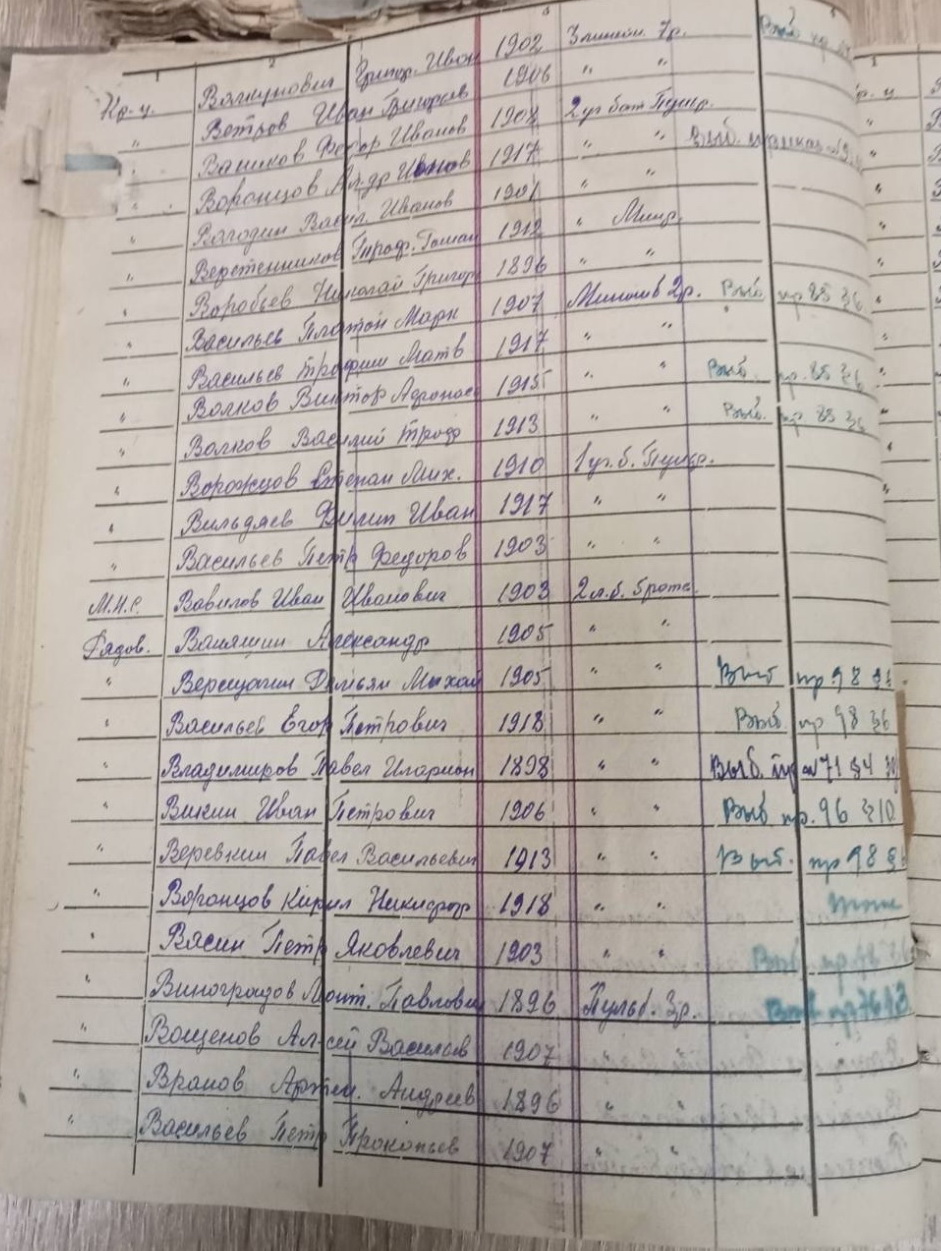 1 2 3
Кр-ц. Вакунович Григ. Иван 1902 3 мином. 7р. Выб пр
" Ветров Иван Григорьев 1906 " "
" Ваников Федор Иванов 1904 2 уч бат Пулер.
" Воронцов Ал-др Иванов 1917 " " Выб.
" Володин Васил. Иванов 1901 " "
" Веретенников Троф. 1912 " Мин.
" Воробьев Николай Григор 1896 " "
" Васильев Платон Марк 1907 Миномв 2р. Выб пр 85 §6
" Васильев Трофим Матв 1917 " "
" Волков Виктор 1915 " " Выб. пр. 85 §6
" Волков Василий Троф 1913 " " Выб. пр 85 §6
" Ворожцов Степан Мих. 1910 1 уч. б. Пулер.
" Вильдяев Филип Иван 1917 " "
" Васильев Петр Федоров 1903 " "
М.Н.С. Вавилов Иван Иванович 1903 2 л.б. 5 рота
Рядов. Александр 1905 " "
" Верещагин Демьян Михай 1905 " " Выб пр 98 §6
" Васильев Егор Петрович 1918 " " Выб пр 98 §6
" Владимиров Павел Иларион 1898 " " Выб. пр 71 §4
" Викин Иван Петрович 1906 " " Выб пр. 96 §10
" Веревкин Павел Васильевич 1913 " " Выб. пр 98 §6
" Воронцов Кирил Никифор 1918 " " тоже
" Васин Петр Яковлевич 1903 " " Выб пр
" Виноградов Павлович 1896 Пульб. 3р. Выб пр 76
" Вощенов Ал-сей Васильев 1907
" Вранов Артем. Андреев 1896 " "
" Васильев Петр Прокопьев 1907 " "